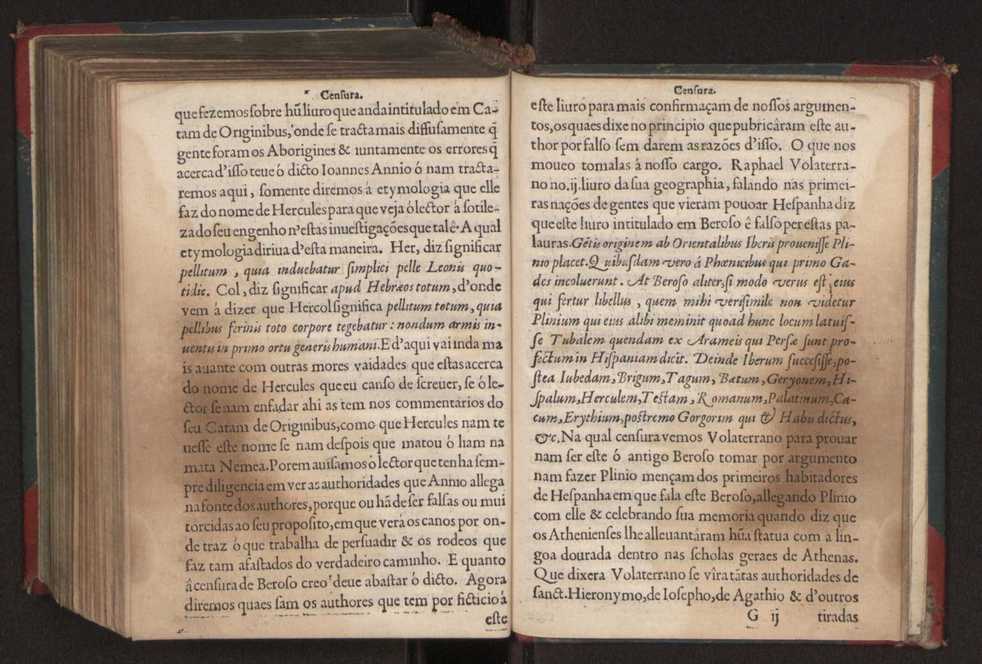 Censura.
que fezemos sobre hũ liuro que anda intitulado em Ca-
tam de Originibus, onde se tracta mais diffusamente q̃
gente foram os Aborigines & iuntamente os errores q̃
acerca d'isso teue ó dicto Ioannes Annio ó nam tracta-
remos aqui, somente diremos á etymologia que elle
faz do nome de Hercules para que veja ó lector á sotile-
za do seu engenho n'estas inuestigações que tal ê. A qual
etymologia diriua d'esta maneira. Her, diz significar
pellitum, quia induebatur simplici pelle Leonis quo-
tidie. Col, diz significar apud Hebræos totum, d'onde
vem á dizer que Hercol significa pellitum totum, quia
pellibus ferinis toto corpore tegebatur: nondum armis in-
uentis in primo ortu generis humani. E d'aqui vai inda ma
is auante com outras mores vaidades que estas acerca
do nome de Hercules que eu canso de screuer, se ó le-
ctor se nam enfadar ahi as tem nos commentarios do
seu Catam de Originibus, como que Hercules nam te
uesse este nome se nam despois que matou ó liam na
mata Nemea. Porem auisamos ó lector que tenha sem-
pre diligencia em ver as authoridades que Annio allega
na fonte dos authores, porque ou hã de ser falsas ou mui
torcidas ao seu proposito, em que verá os canos por on-
de traz ó que trabalha de persuadir & os rodeos que
faz tam afastados do verdadeiro caminho. E quanto
â censura de Beroso creo deue abastar ó dicto. Agora
diremos quaes sam os authores que tem por ficticio á
este
Censura.
este liuro para mais confirmaçam de nossos argumen-
tos, os quaes dixe no principio que pubricâram este au-
thor por falso sem darem as razões d'isso. O que nos
moueo tomalas â nosso cargo. Raphael Volaterra-
no no.ij. liuro da sua geographia, falando nas primei-
ras nações de gentes que vieram pouoar Hespanha diz
que este liuro intitulado em Beroso ê falso per estas pa-
lauras. Gẽtis originem ab Orientalibus Iberis prouenisse Pli-
nio placet. Quibusdam vero á Phœnicibus qui primo Ga-
des incoluerunt. At Beroso aliter, si modo verus est eius
qui fertur libellus, quem mihi verisimile non videtur
Plinium qui eius alibi meminit quoad hunc locum latuis-
se Tubalem quendam ex Arameis qui Persæ sunt pro-
fectum in Hispaniam dicit. Deinde Iberum successisse, po-
stea Iubedam, Brigum, Tagum, Batum, Geryonem, Hi-
spalum, Herculem, Testam, Romanum, Palatinum, Ca-
cum, Erythium, postremo Gorgorim qui & Habu dictus,
&c, Na qual censura vemos Volaterrano para prouar
nam ser este ó antigo Beroso tomar por argumento
nam fazer Plinio mençam dos primeiros habitadores
de Hespanha em que fala este Beroso, allegando Plinio
com elle & celebrando sua memoria quando diz que
os Athenienses lhe alleuantáram hũa statua com a lin-
goa dourada dentro nas scholas geraes de Athenas.
Que dixera Volaterrano se víra tãtas authoridades de
sanct. Hieronymo, de Iosepho, de Agathio & d'outros
G ij tiradas